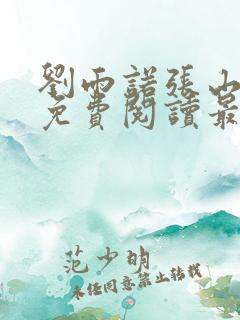 劉雨諾張山
免費閱讀最
范少明
未经同意禁止转载